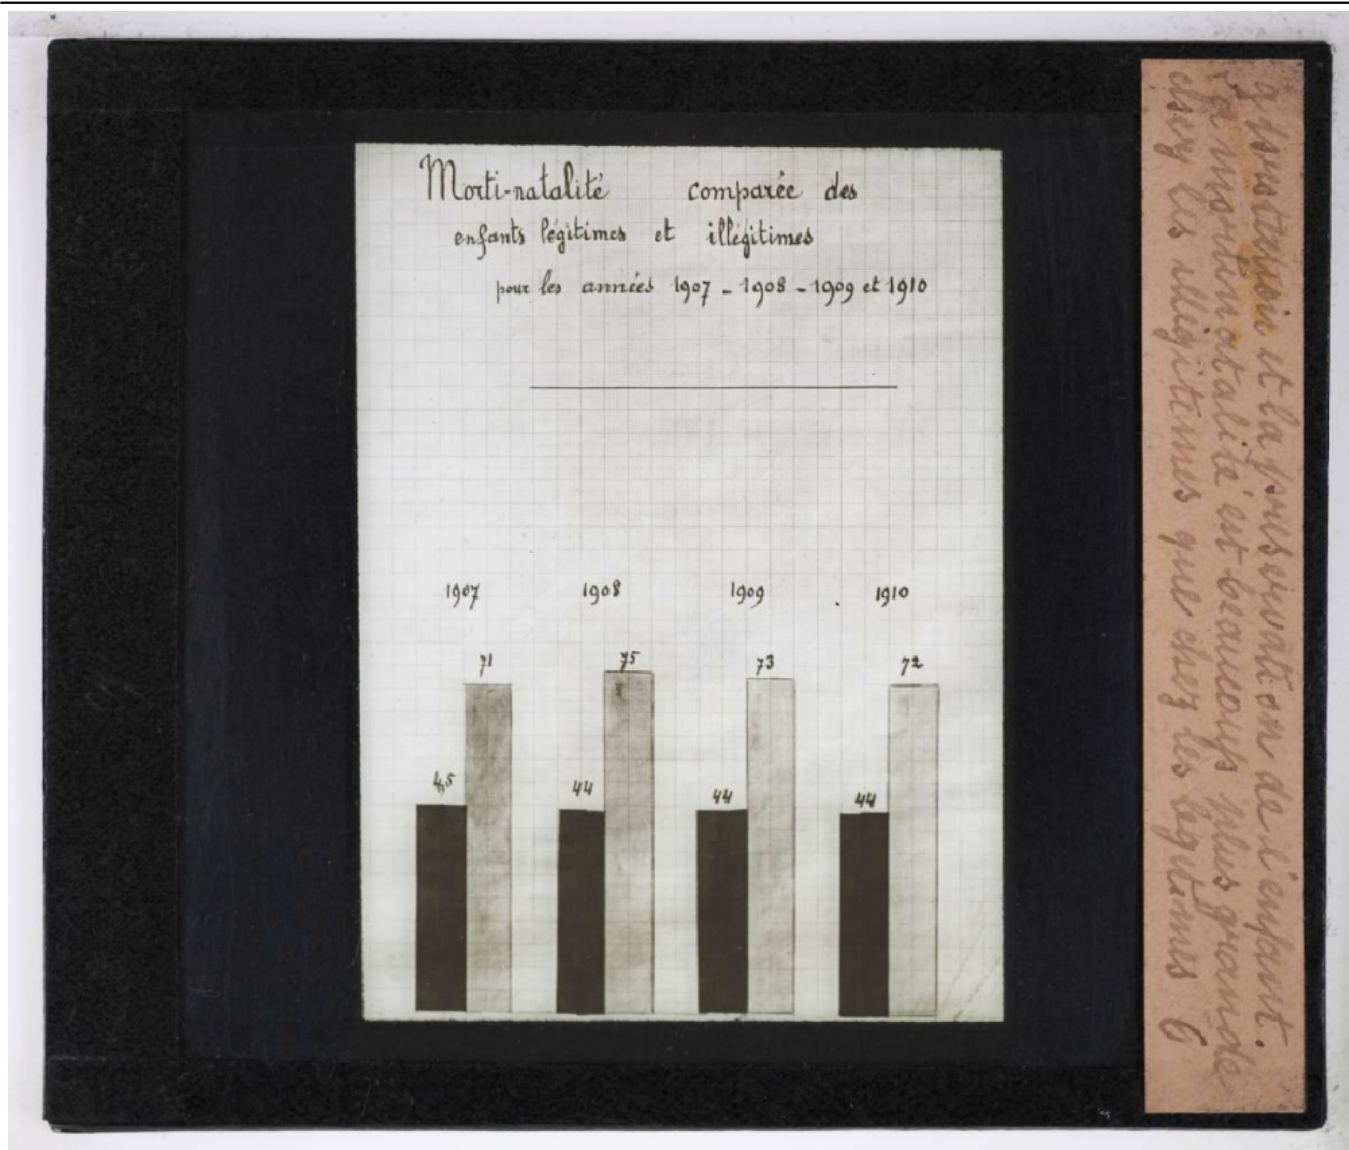 Morti-natalité comparée des
enfants légitimes et illégitimes
pour les années 1907 - 1908 - 1909 et 1910
1907 1908 1909 1910
71 75 73 72
45 44 44 44
et la préservation de l'enfant.
La mortinatalité est beaucoup plus grande
chez les illégitimes que chez les légitimes 6